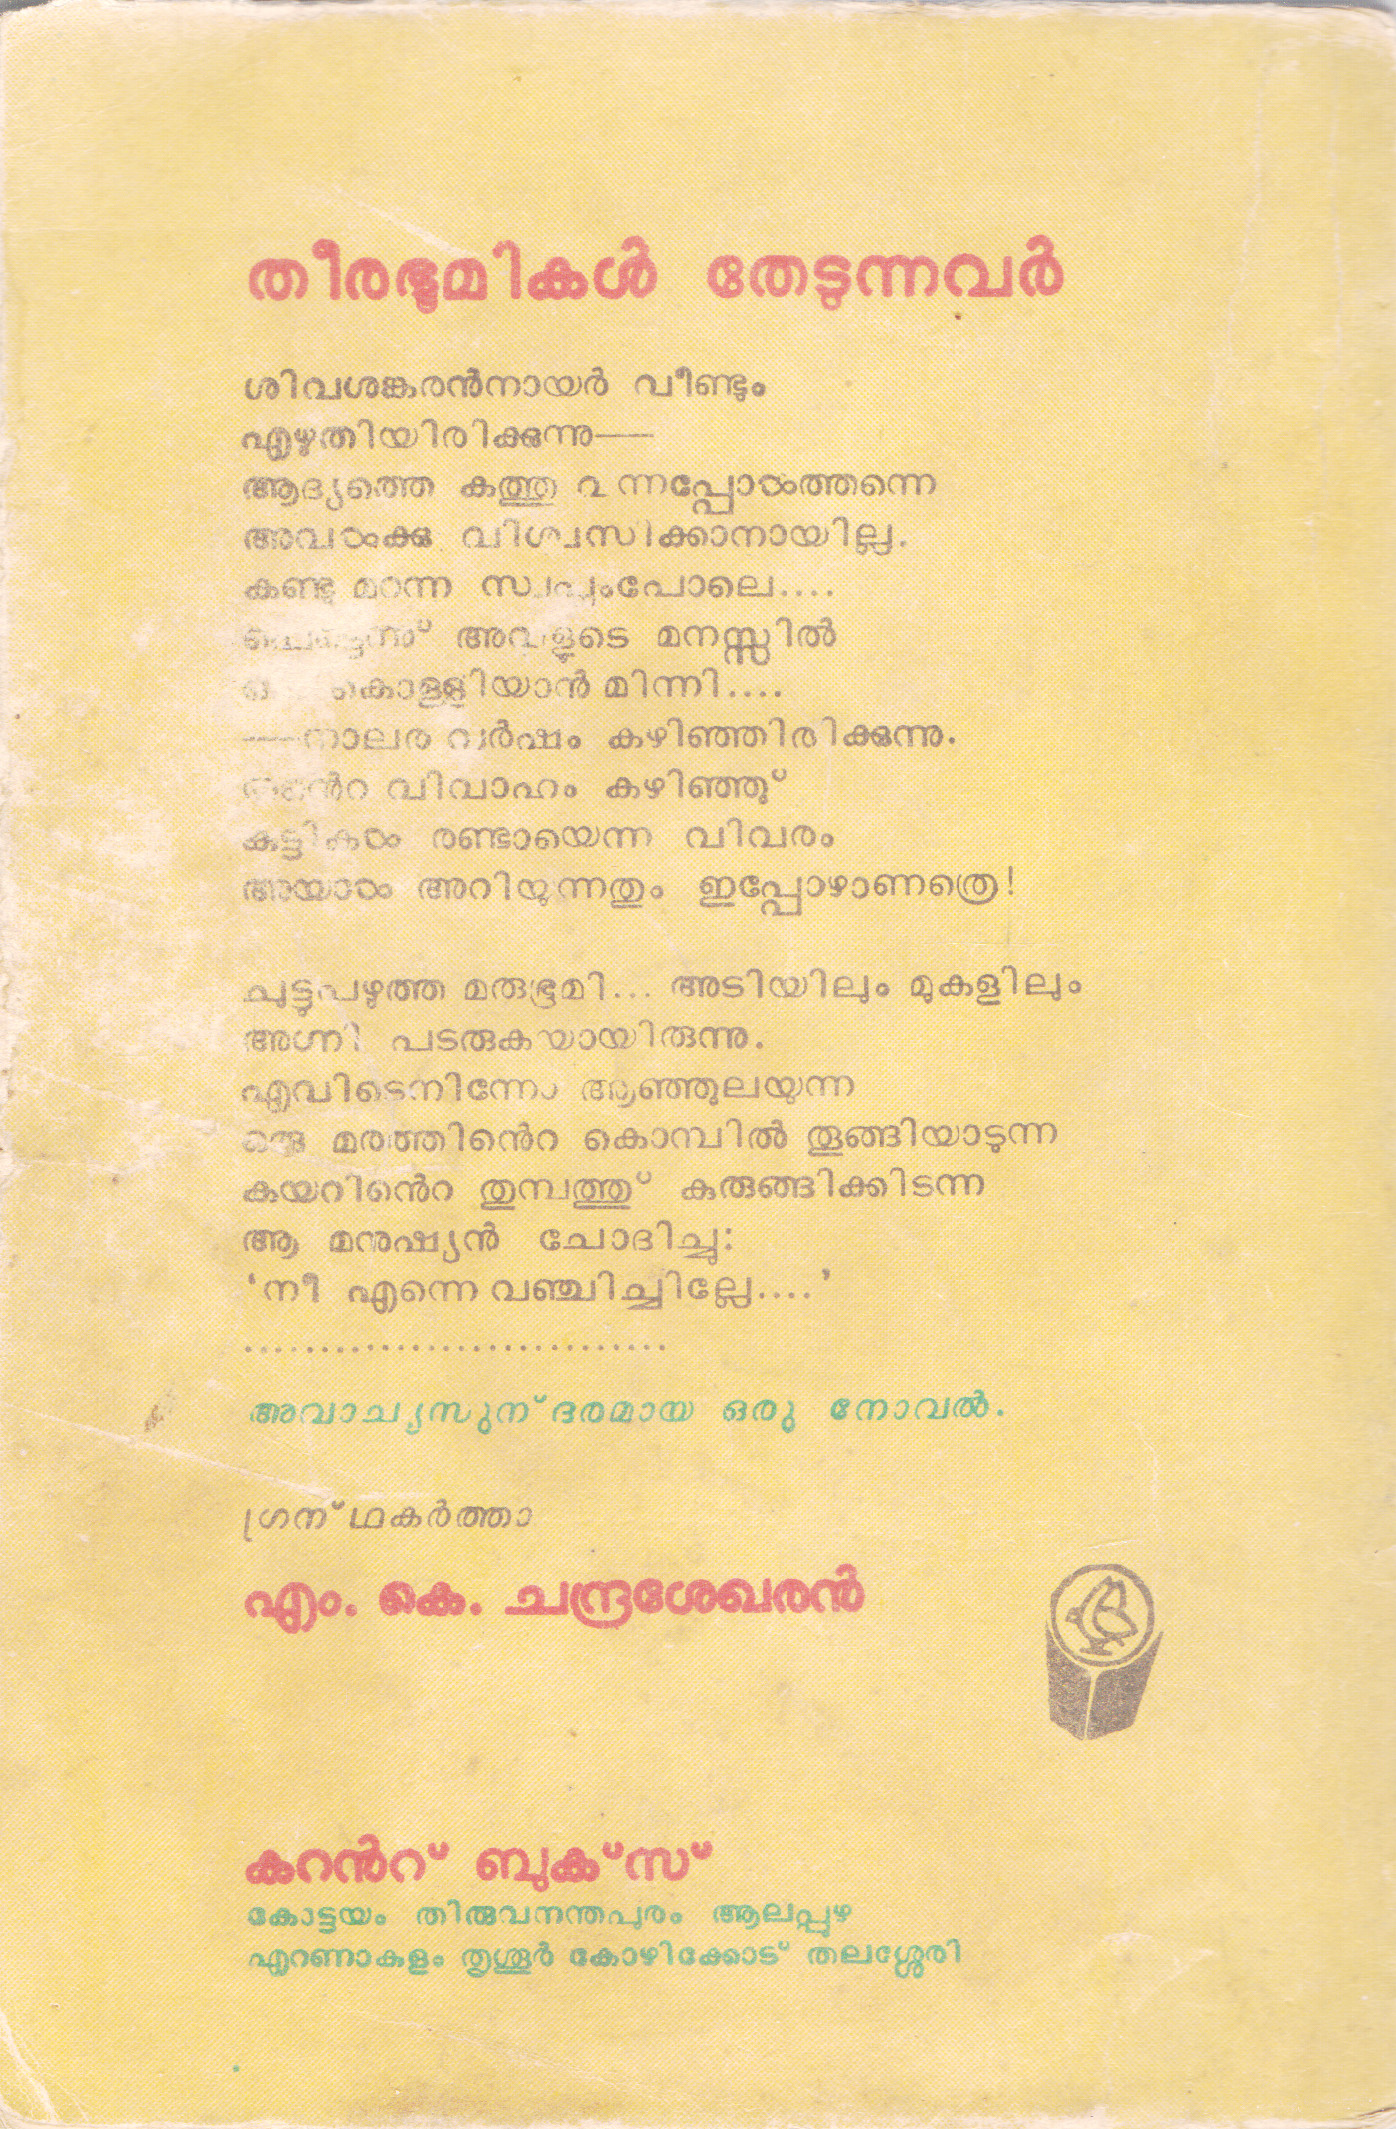 തീരഭൂമികൾ തേടുന്നവർ
ശിവശങ്കരൻനായർ വീണ്ടും
എഴുതിയിരിക്കുന്നു—
ആദ്യത്തെ കത്തു വന്നപ്പോൾത്തന്നെ
അവൾക്കു വിശ്വസിക്കാനായില്ല.
കണ്ടു മറന്ന സ്വപ്നംപോലെ....
പെട്ടെന്നു് അവളുടെ മനസ്സിൽ
കൊള്ളിയാൻ മിന്നി....
—നാലര വർഷം കഴിഞ്ഞിരിക്കുന്നു.
തന്റെ വിവാഹം കഴിഞ്ഞു്
കുട്ടികൾ രണ്ടായെന്ന വിവരം
അയാൾ അറിയുന്നതും ഇപ്പോഴാണത്രെ!
ചുട്ടുപഴുത്ത മരുഭൂമി... അടിയിലും മുകളിലും
അഗ്നി പടരുകയായിരുന്നു.
എവിടെനിന്നോ ആഞ്ഞുലയുന്ന
ഒരു മരത്തിൻെറ കൊമ്പിൽ തൂങ്ങിയാടുന്ന
കയറിൻെറ തുമ്പത്തു് കുരുങ്ങിക്കിടന്ന
ആ മനുഷ്യൻ ചോദിച്ചു:
‘നീ എന്നെ വഞ്ചിച്ചില്ലേ....’
............................
അവാച്യസുന്ദരമായ ഒരു നോവൽ.
ഗ്രന്ഥകർത്താ
എം. കെ. ചന്ദ്രശേഖരൻ
കറൻറ് ബുക്സ്
കോട്ടയം തിരുവനന്തപുരം ആലപ്പുഴ
എറണാകുളം തൃശൂർ കോഴിക്കോട് തലശ്ശേരി